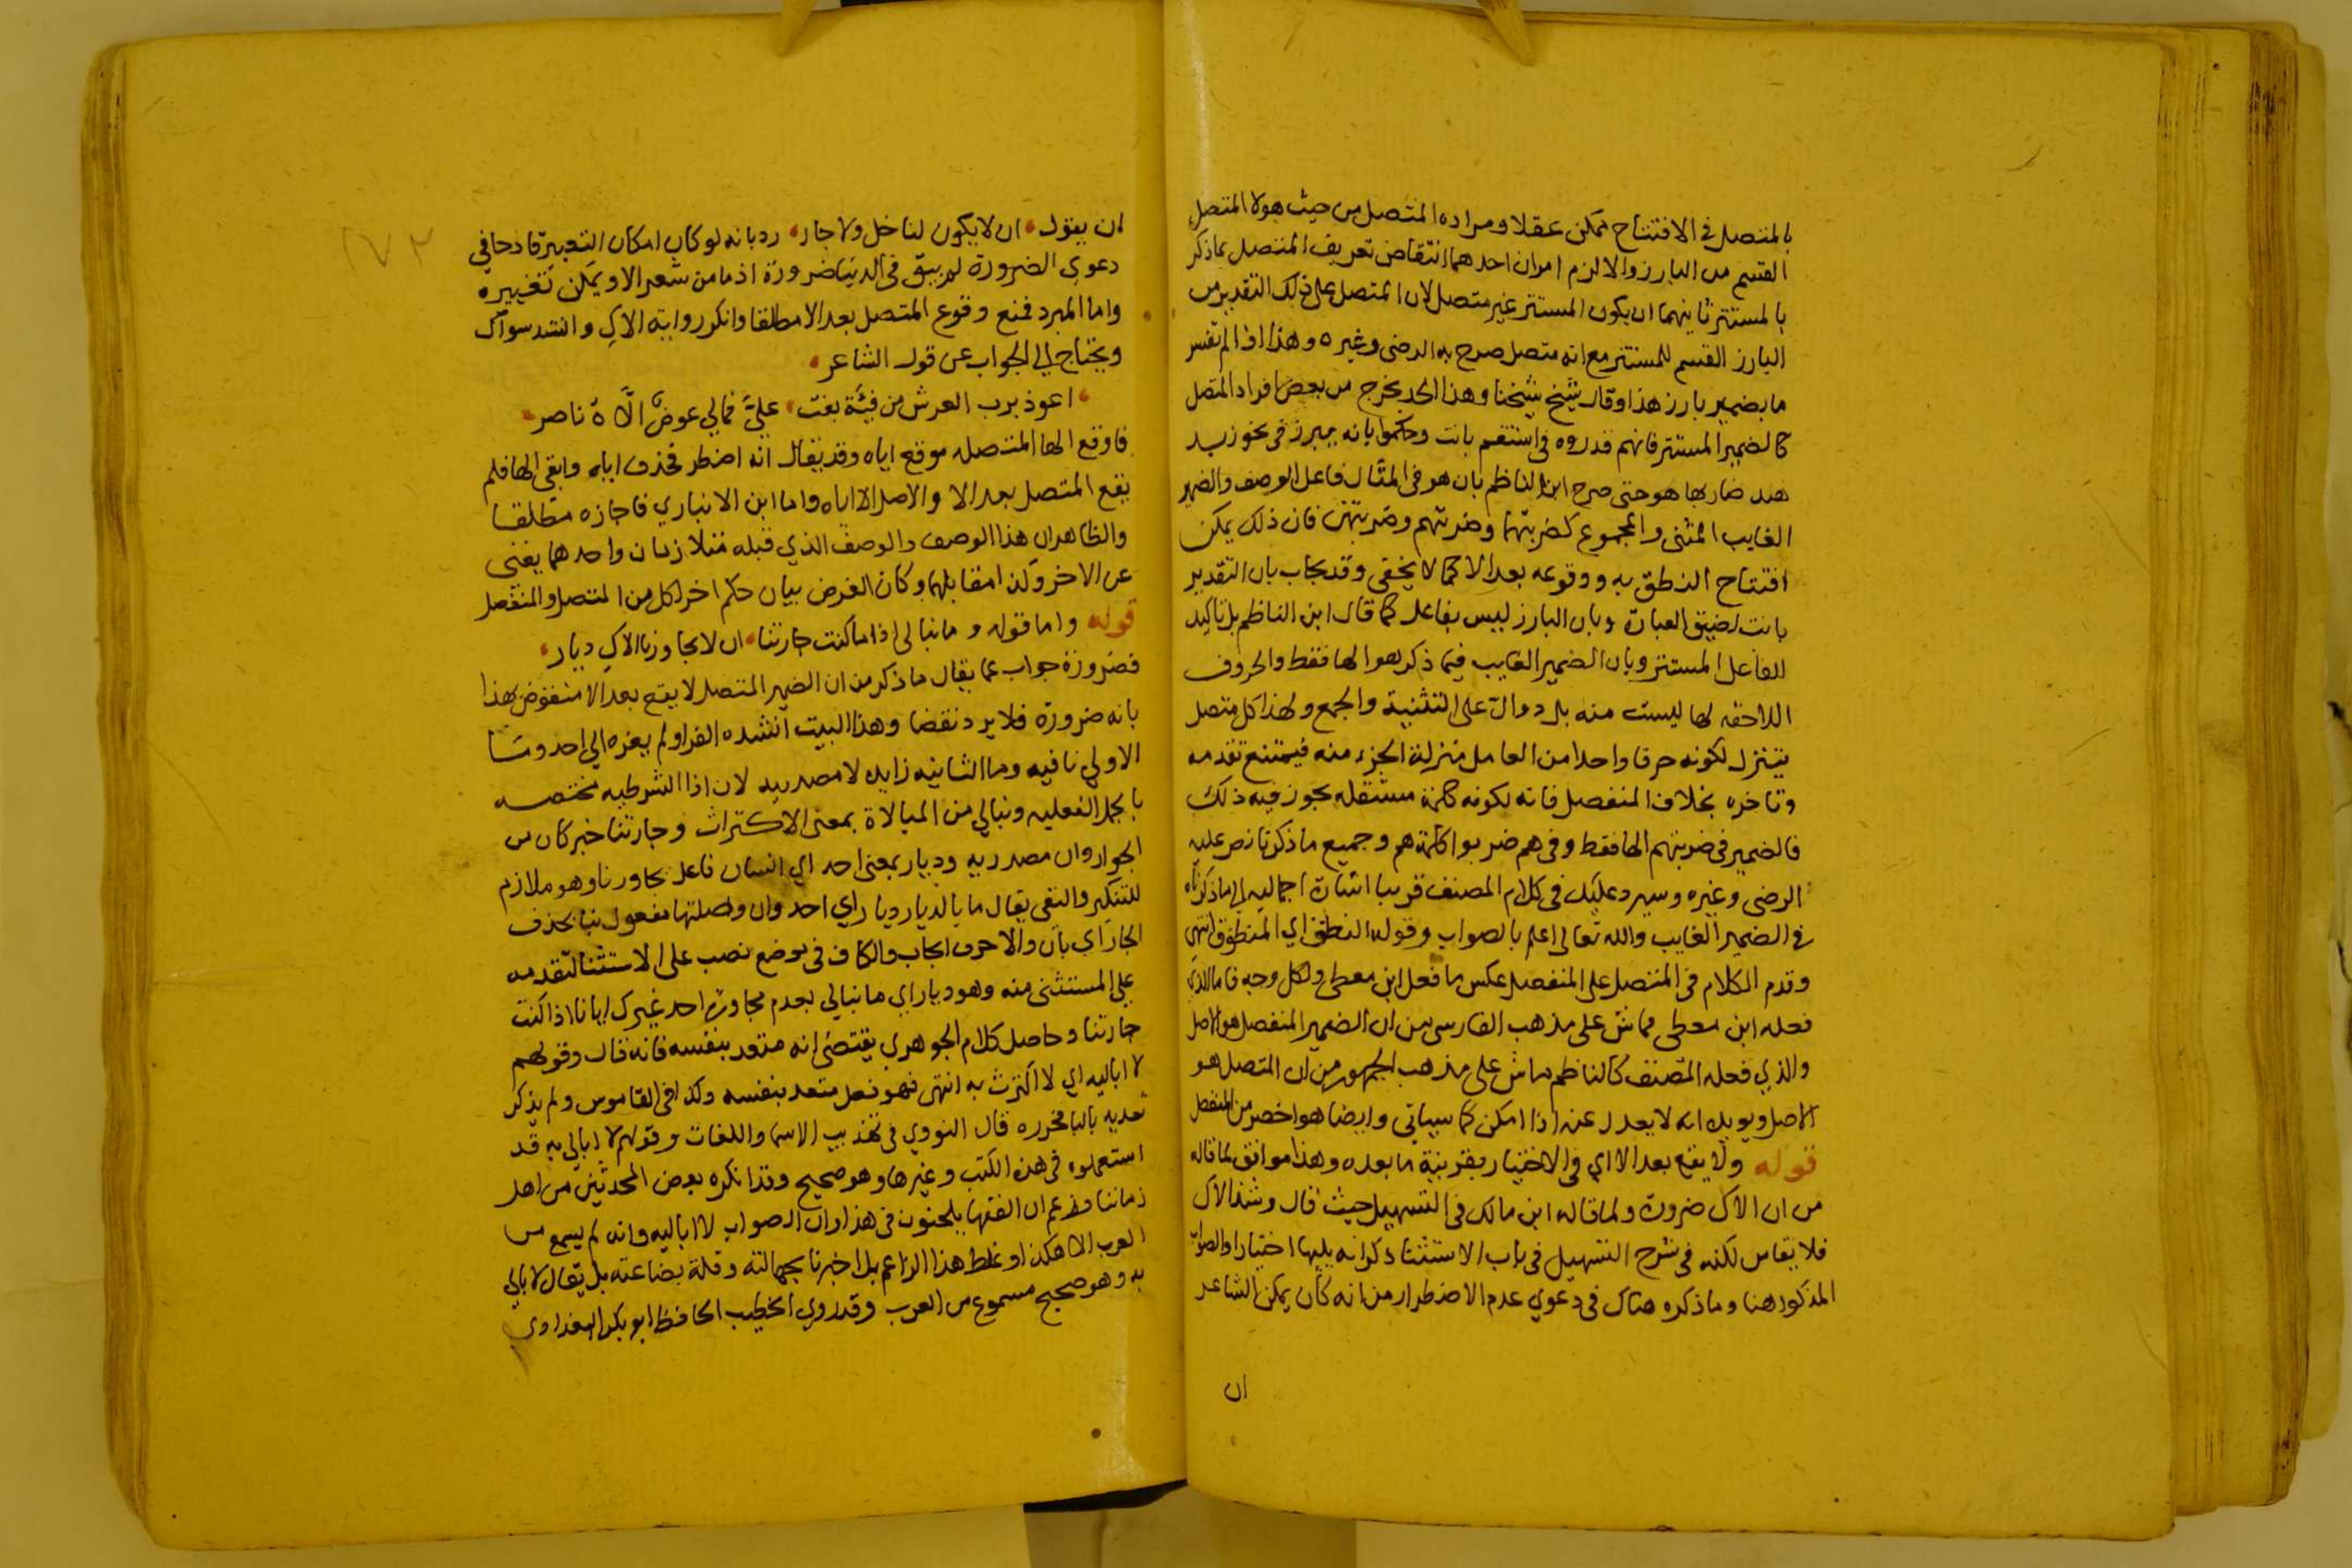 بالمتصل في الافتتاح ممكن عقلا ومراده المتصل من حيث هو لا المتصل
القسم من البارز والا لزم امران احدهما انتقاض تعريف المتصل بماذكر
بالمستتر ثانيهما ان يكون المستتر غير متصل لان المتصل على ذلك التقدير من
البارز القسم للمستتر مع انه متصل صرح به الرضى وغيره وهذا اذا لم تفسر
ما بضمير بارز هذا وقال شيخ شيخنا وهذا الحد يخرج من بعض افراد المتصل
كالضمير المستتر فانهم قدروه في استقم بانت وحكموا بانه يبرز في نحو زيد
هند ضاربها هو حتى صرح ابن الناظم بان هو في المثال فاعل الوصف والضمير
الغايب المثنى والمجموع كضربتهما وضربتهم وضربتهن فان ذلك يمكن
افتتاح النطق به ووقوعه بعد الا كما لا يخفى وقد يجاب بان التقدير
بانت لضيق العبارة وبان البارز ليس بفاعل كما قال ابن الناظم بل تاكيد
للفاعل المستتر وبان الضمير الغايب فيما ذكر هو الها فقط والحروف
اللاحقه لها ليست منه بل دوال على التثنية والجمع ولهذا كل متصل
يتنزل لكونه حرفا واحدا من العامل منزلة الجزء منه فيمتنع تقدمه
وتاخره بخلاف المنفصل فانه لكونه كلمة مستقله يجوز فيه ذلك
فالضمير في ضربتهم الها فقط وفي هم ضربوا كلمة هم وجميع ما ذكرنا نص عليه
الرضى وغيره وسيرد عليك في كلام المصنف قريبا اشارة اجماليه الى ما ذكرناه
في الضمير الغايب والله تعالى اعلم بالصواب وقوله النطق اي المنطوق انتهى
وقدم الكلام في المتصل على المنفصل عكس ما فعل ابن معطي ولكل وجه فاما الذي
فعله ابن معطي فماش على مذهب الفارسي من ان الضمير المنفصل هو الاصل
والذي فعله المصنف كالناظم ماش على مذهب الجمهور من ان المتصل هو
الاصل ويويده انه لا يعدل عنه اذا امكن كما سياتي وايضا هو اخصر من المنفصل
قوله ولا يقع بعد الا اي في الاختيار بقرينة ما بعده وهذا موافق لما قاله
من ان الاك ضرورة ولما قاله ابن مالك في التسهيل حيث قال وشذ الاك
فلا يقاس لكنه في شرح التسهيل في باب الاستثنا ذكر انه يليها اختيارا والصواب
المذكور هنا وما ذكره هناك في دعوي عدم الاضطرار من انه كان يمكن الشاعر
ان
ان يقول ان لا يكون لنا خل ولا جار رد بانه لو كان امكان التعبير قادحا في
دعوي الضرورة لم يبق في الدنيا ضرورة اذ ما من شعر الا ويمكن تغييره
واما المبرد فمنع وقوع المتصل بعد الا مطلقا وانكر رواية الاك وانشد سواك
ويحتاج الى الجواب عن قول الشاعر
اعوذ برب العرش من فئة بغت علىَّ فمالي عوضُ الَّاهُ ناصر
فاوقع الها المتصله موقع اياه وقد يقال انه اضطر فحذف اياه وابقى الها فلم
يقع المتصل بعد الا والاصل الا اياه واما ابن الانباري فاجازه مطلقا
والظاهر ان هذا الوصف والوصف الذي قبله متلازمان واحدهما يغنى
عن الاخر وكذا مقابلهما وكان الغرض بيان حكم اخر لكل من المتصل والمنفصل
قوله واما قوله وما نبالي اذا ما كنت جارتنا ان لا يجاورنا الاك ديار
فضرورة جواب عما يقال ما ذكر من ان الضمير المتصل لا يقع بعد الا منقوض بهذا
بانه ضرورة فلا يرد نقضا وهذا البيت انشده الفرا ولم يعزه الي احد وما
الاولي نافيه وما الثانيه زايده لا مصدريه لان اذا الشرطيه مختصه
بالجمل الفعليه ونبالي من المبالاة بمعنى الاكتراث وجارتنا خبر كان من
الجوار وان مصدريه وديار بمعنى احد اي انسان فاعل يجاورنا وهو ملازم
للتنكير والنفي يقال ما بالدار ديار اي احد وان وصلتها مفعول نبا بحذف
الجار اي بان والا حرف ايجاب والكاف في موضع نصب على الاستثنا لتقدمه
على المستثنى منه وهو ديار اي ما نبالي بعدم مجاورة احد غيرك ايانا اذا كنت
جارتنا وحاصل كلام الجوهري يقتضى انه متعد بنفسه فانه قال وقولهم
لا اباليه اي لا اكترث به انتهى فهو فعل متعد بنفسه وكذا في القاموس ولم يذكر
تعديه بالبا فحرره قال النووي في تهذيب الاسما واللغات وقولهم لا ابالي به قد
استعملوه في هذه الكتب وغيرها وهو صحيح وقد انكره بعض المحدثين من اهل
زماننا وزعم ان الفقها يلحنون في هذا وان الصواب لا اباليه وانه لم يسمع من
العرب الا هكذا وغلط هذا الزاعم بل اخبرنا بجهالته وقلة بضاعته بل يقال لا ابالي
به وهو صحيح مسموع من العرب وقد روي الخطيب الحافظ ابو بكر البغدادي